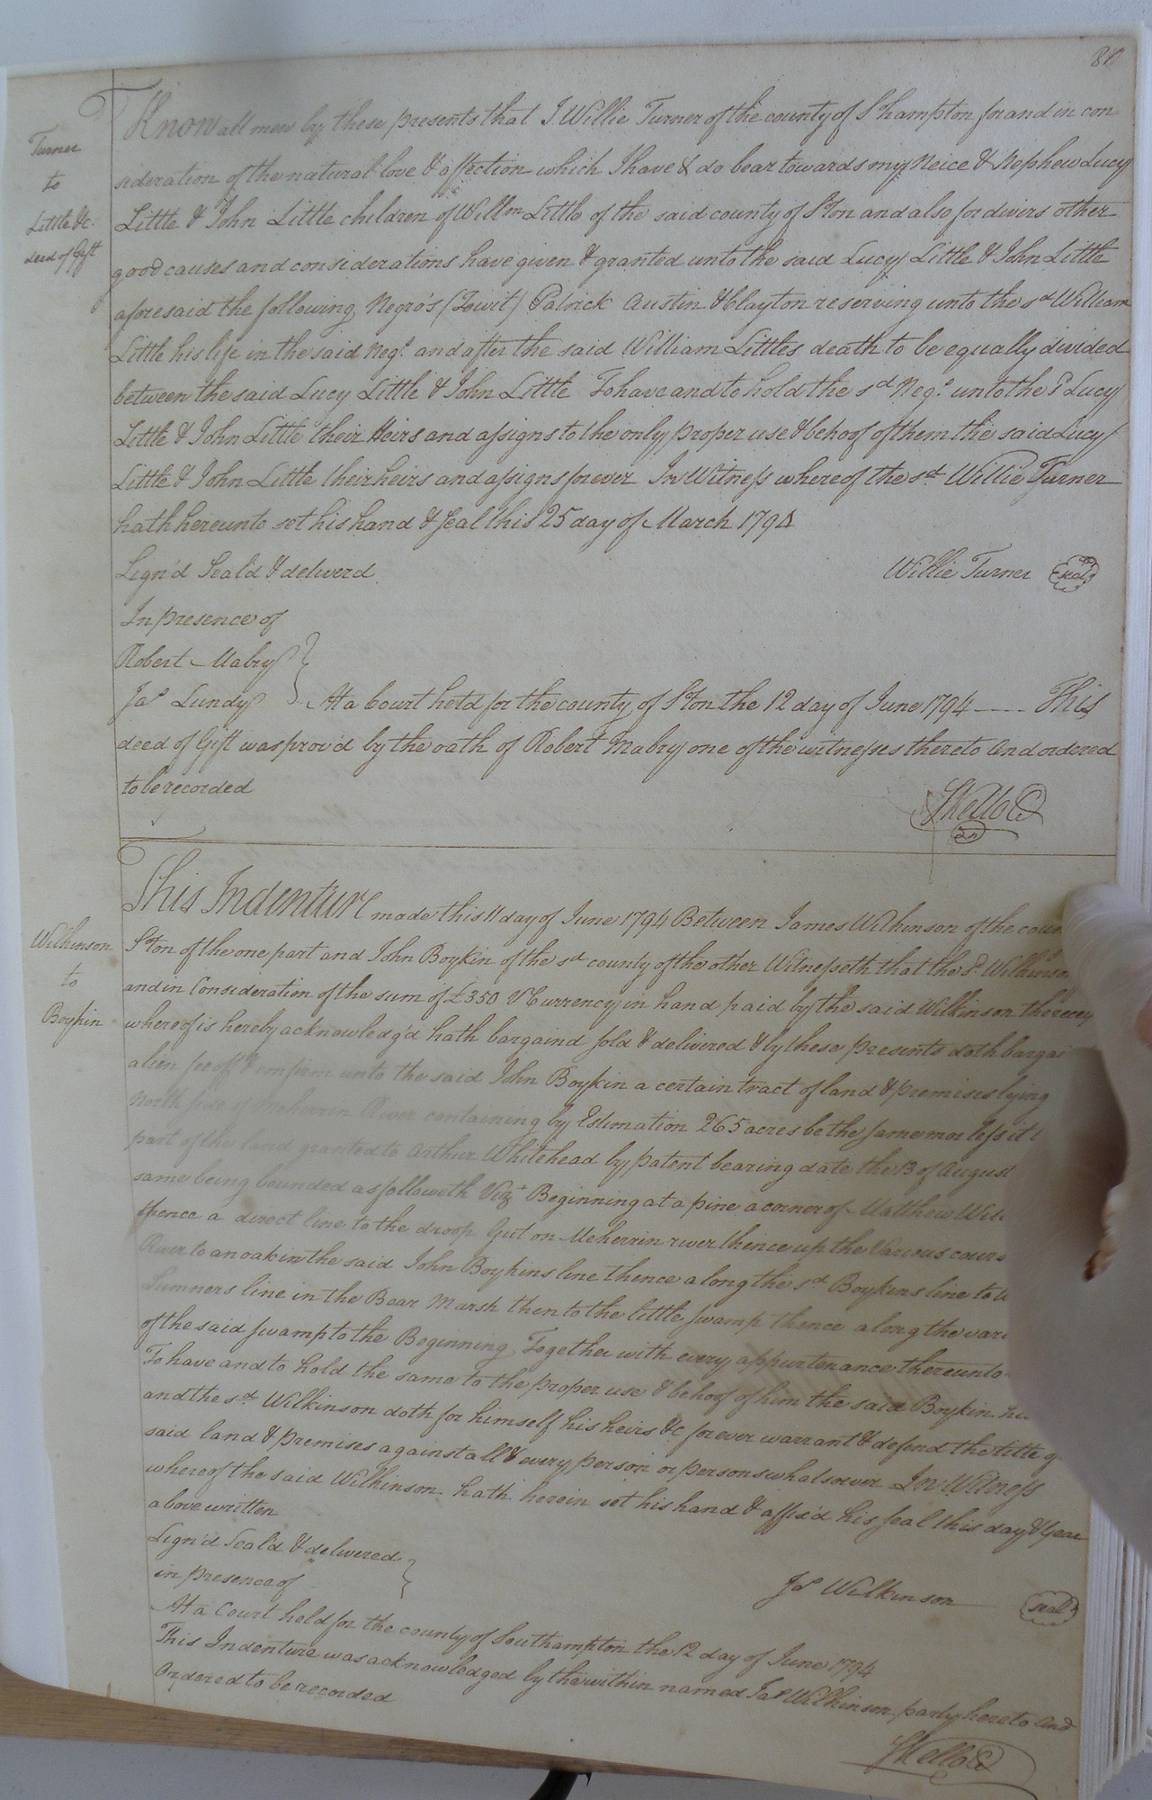 80
Turner
to
Little &c.
deed of Gift
Know all men by these presents that I Willie Turner of the county of S'hampton for and in con
sideration of the natural love & affection which I have & do bear towards my Neice & Nephew Lucy
Little & John Little children of Willm Little of the said county of S'ton and also for divers other
good causes and considerations have given & granted unto the said Lucy Little & John Little
aforesaid the following Negro's (Towit) Patrick Austin & Clayton reserving unto the sd William
Little his life in the said Negs. and after the said William Littles death to be equally divided
between the said Lucy Little & John Little To have and to hold the sd Negs. unto the sd Lucy
Little & John Little their Heirs and assigns to the only proper use & behoof of them the said Lucy
Little & John Little their heirs and assigns forever In Witness whereof the sd Willie Turner
hath hereunto set his hand & seal this 25 day of March 1794
Sign'd Seal'd & deliverd
Willie Turner seal
In presence of
Robert Mabry
Jas Lundy
At a Court held for the county of S'ton the 12 day of June 1794 ---- This
deed of Gift was prov'd by the oath of Robert Mabry one of the witnesses thereto And ordered
to be recorded
Wilkinson
to
Boykin
This Indenture made this 11 day of June 1794 Between James Wilkinson of the
S'ton of the one part and John Boykin of the sd county of the other Witnesseth that the sd Wilkinson
and in Consideration of the sum of £350 V Currency in hand paid by the said Wilkinson the
whereof is hereby acknowledg'd hath bargaind sold & delivered & by these presents doth
alien feoff & confirm unto the said John Boykin a certain tract of land & premises lying
North side of Meherrin River containing by Estimation 265 acres be the same more or less it
part of the land granted to Arthur Whitehead by patent bearing date the 13 of August
same being bounded as followeth Vizt Beginning at a pine a corner of Matthew
thence a direct line to the droop Gut on Meherrin river thence up the Various
River to an oak in the said John Boykins line thence along the sd Boykins line to
Sumners line in the Bear Marsh then to the little swamp thence along the
of the said swamp to the Beginning Together with every appurtenance thereunto
To have and to hold the same to the proper use & behoof of him the said Boykin
and the sd Wilkinson doth for himself his heirs &c forever warrant & defend the title
said land & premises against all & every person or persons whatsoever In Witness
whereof the said Wilkinson hath herein set his hand & affix'd his seal this day & Year
above written
Sign'd Seal'd & delivered
in presence of
Js Wilkinson seal
At a Court held for the county of Southampton the 12 day of June 1794
This Indenture was acknowledged by the within named Jas Wilkinson party hereto And
Ordered to be recorded